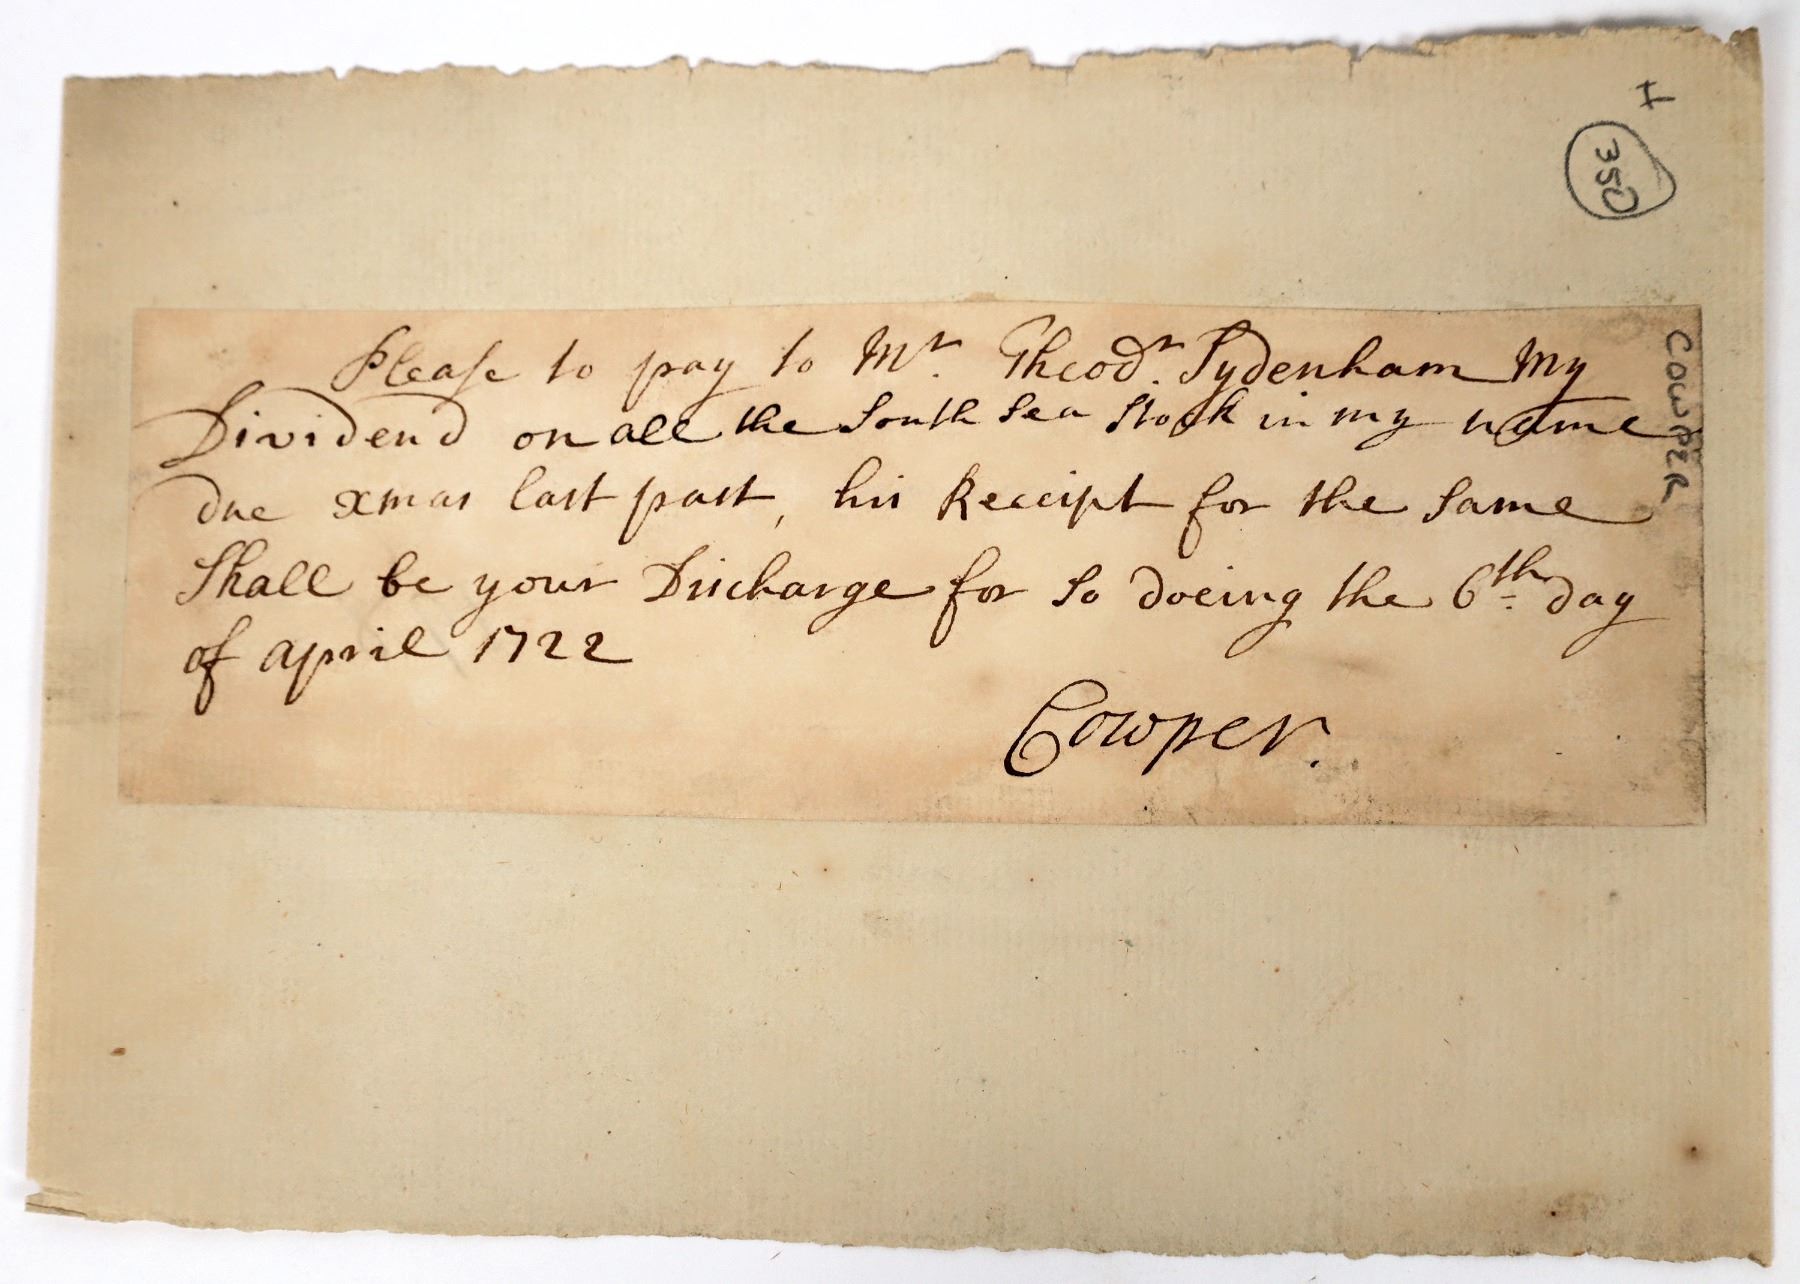 Please to pay to Mr. Theodr. Sydenham My
Dividend on all the South Sea Stock in my name
due xmas last past, his Receipt for the Same
Shall be your Discharge for So doeing the 6th day
of april 1722
Cowper.
COWPER
350